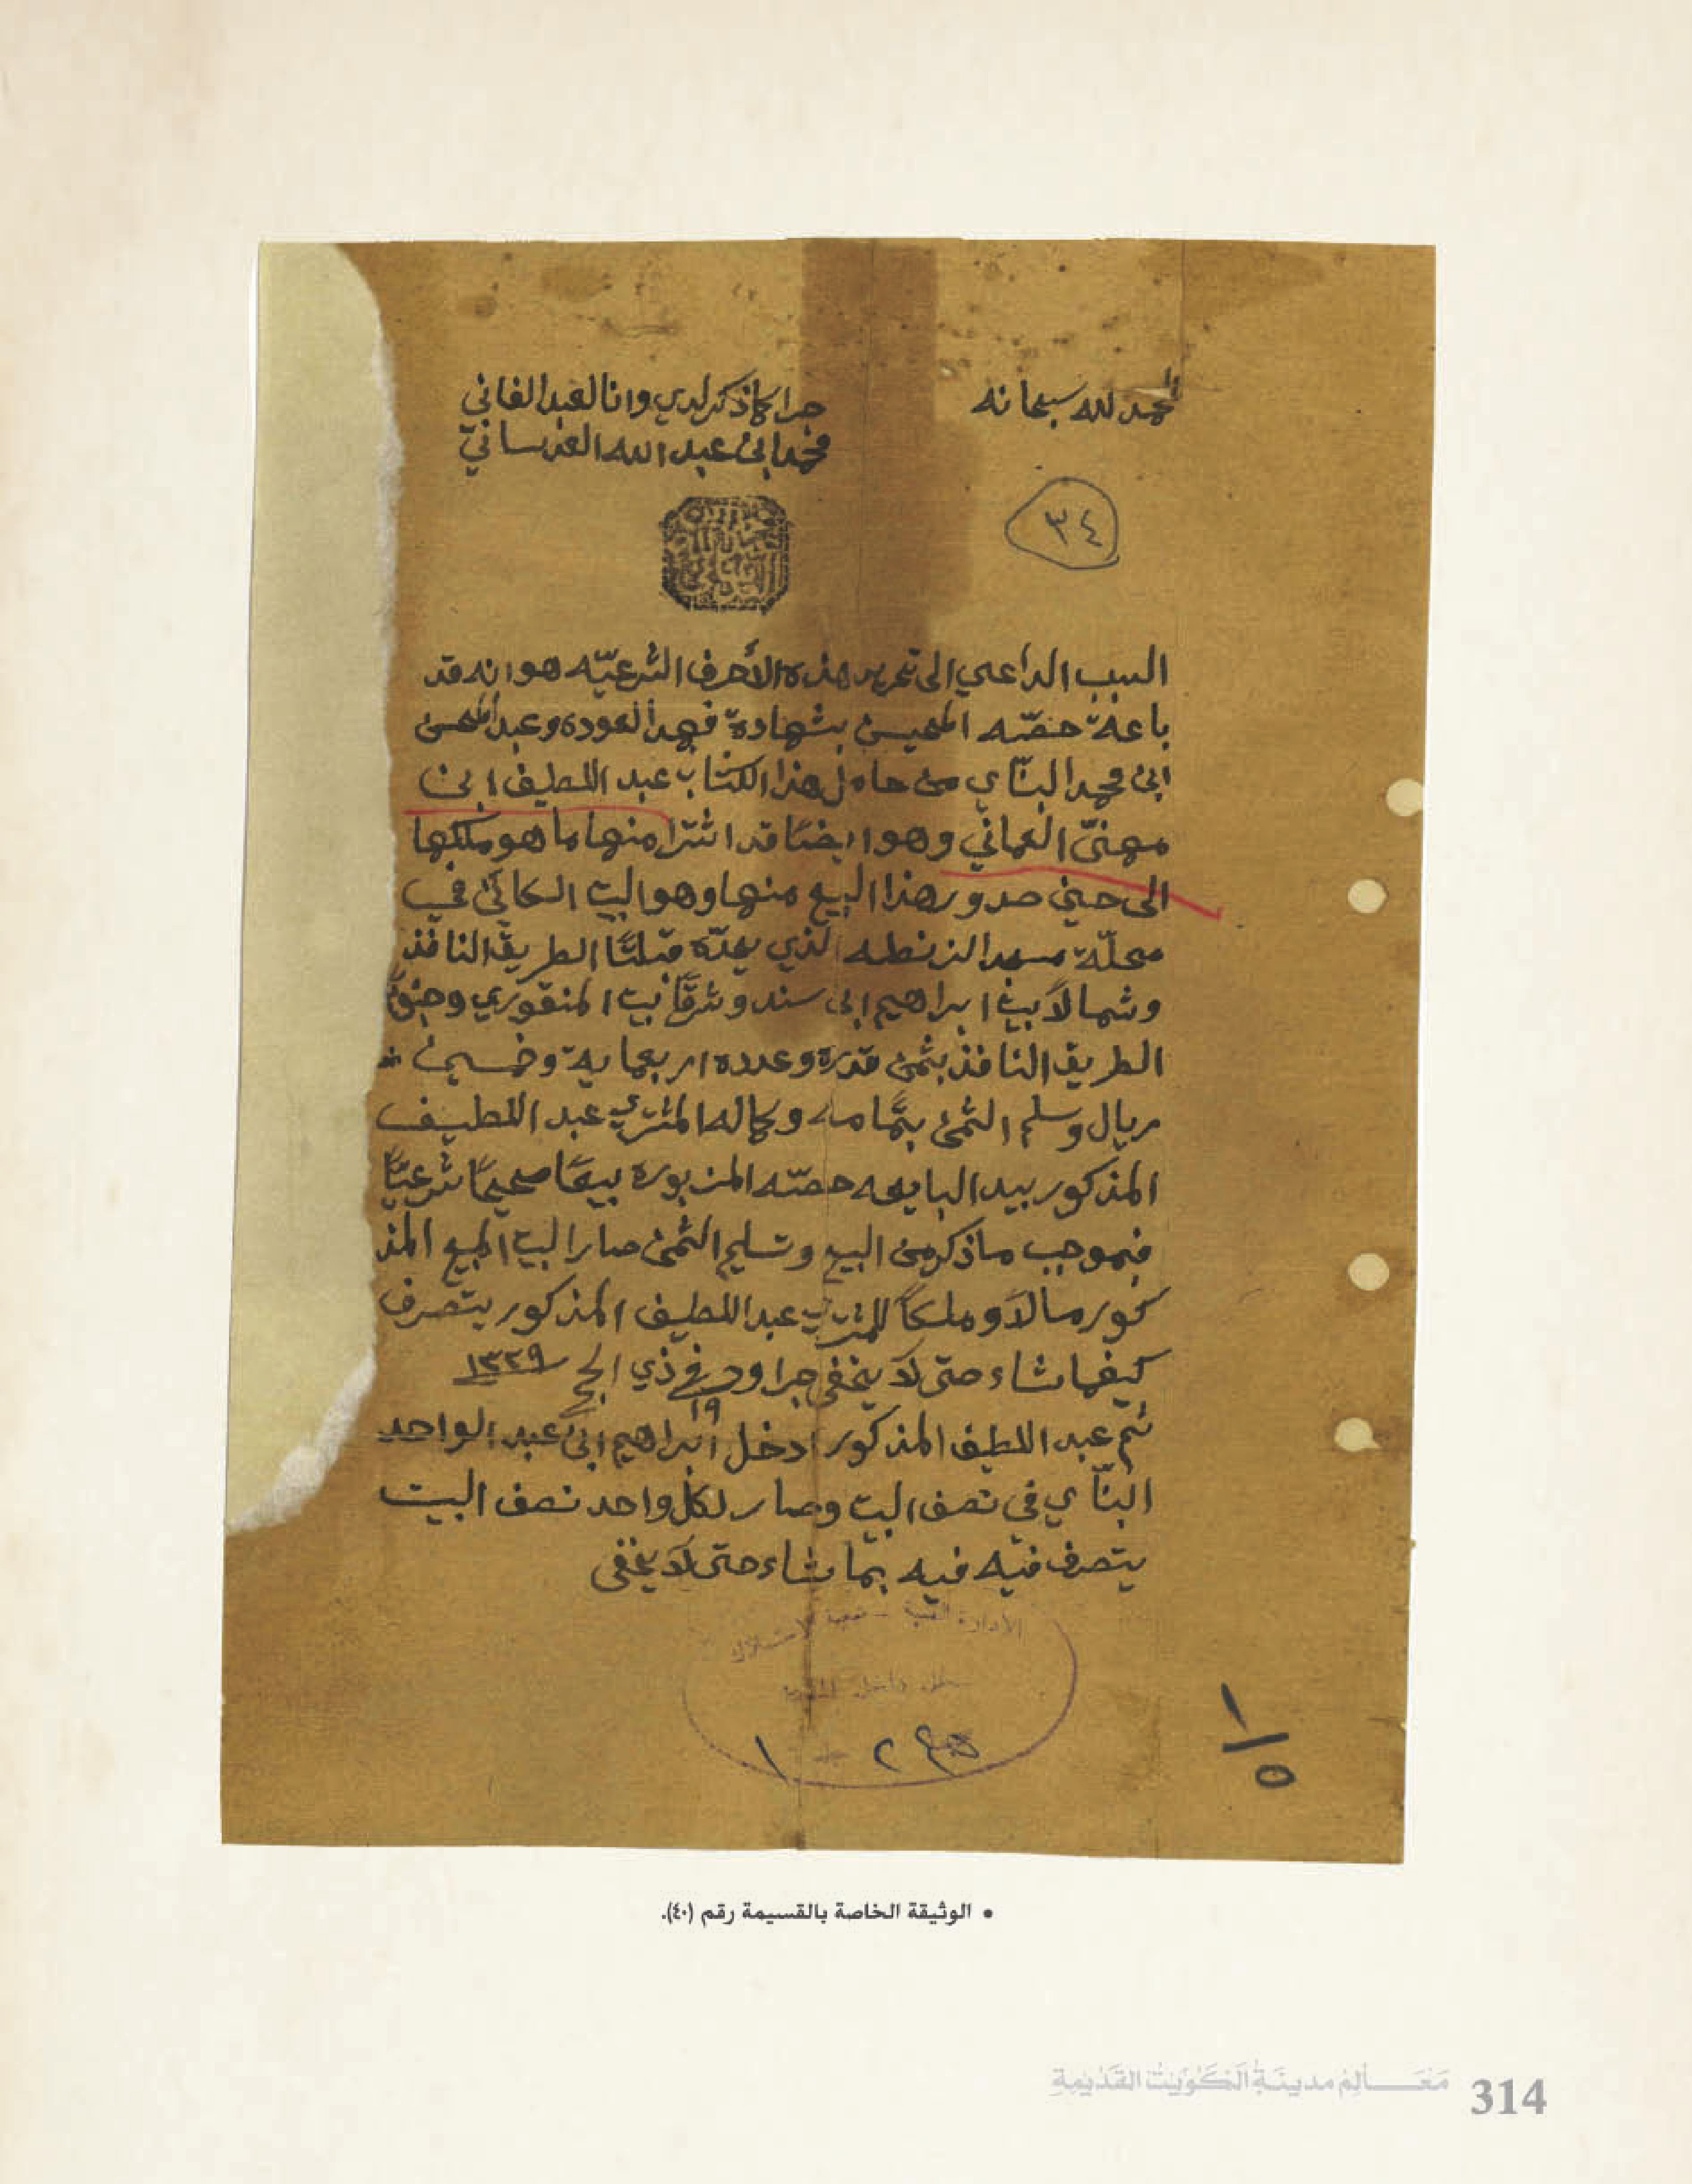 الحمد لله سبحانه
جرا كما ذكر لدي وانا العبد الفاني
محمد ابن عبد الله العدساني
٣٤
السبب الداعي الى تحرير هذه الأحرف الشرعيّه هو انه قد
باعة حصّه المحيسن بشهادة فهد العوده وعبد المحسن
ابن محمد البنّاي من حامل هذا الكتاب عبد اللطيف ابن
مهنّى العماني وهو ايضًا قد اشترا منها ما هو ملكها
الى حين صدور هذا البيع منها وهو البيت الكائن في
محلّة مسجد الزنطه الذي يحدّه قبلتًا الطريق النافذ
وشمالاً بيت ابراهيم ابن سند وشرقًا بيت المنقوري وجنوبً
الطريق النافذ بثمن قدره وعدده اربعماية وخمسين
ريال وسلم الثمن بتمامه وكماله المشتري عبد اللطيف
المذكور بيد البايعه حصّه المزبورة بيعًا صحيحًا شرعيًّا
فبموجب ما ذكر من البيع وتسليم الثمن صار البيت المبيع المذ
كور مالاً وملكاً للمشتري عبد اللطيف المذكور يتصرف
كيفما شاء حتى لا يخفى جرا وحرر في ١٩ ذي الحج ١٣٢٩
ثم عبد اللطيف المذكور ادخل ابراهيم ابن عبد الواحد
البنّاي في نصف البيت وصار لكل واحد نصف البيت
يتصرف فيه فيه بما شاء حتى لا يخفى
الادارة
١/٥
• الوثيقة الخاصة بالقسيمة رقم (٤٠).
مَعَـالِمُ مدينَةِ الكُوَيْتْ القَدْيمِةِ 314